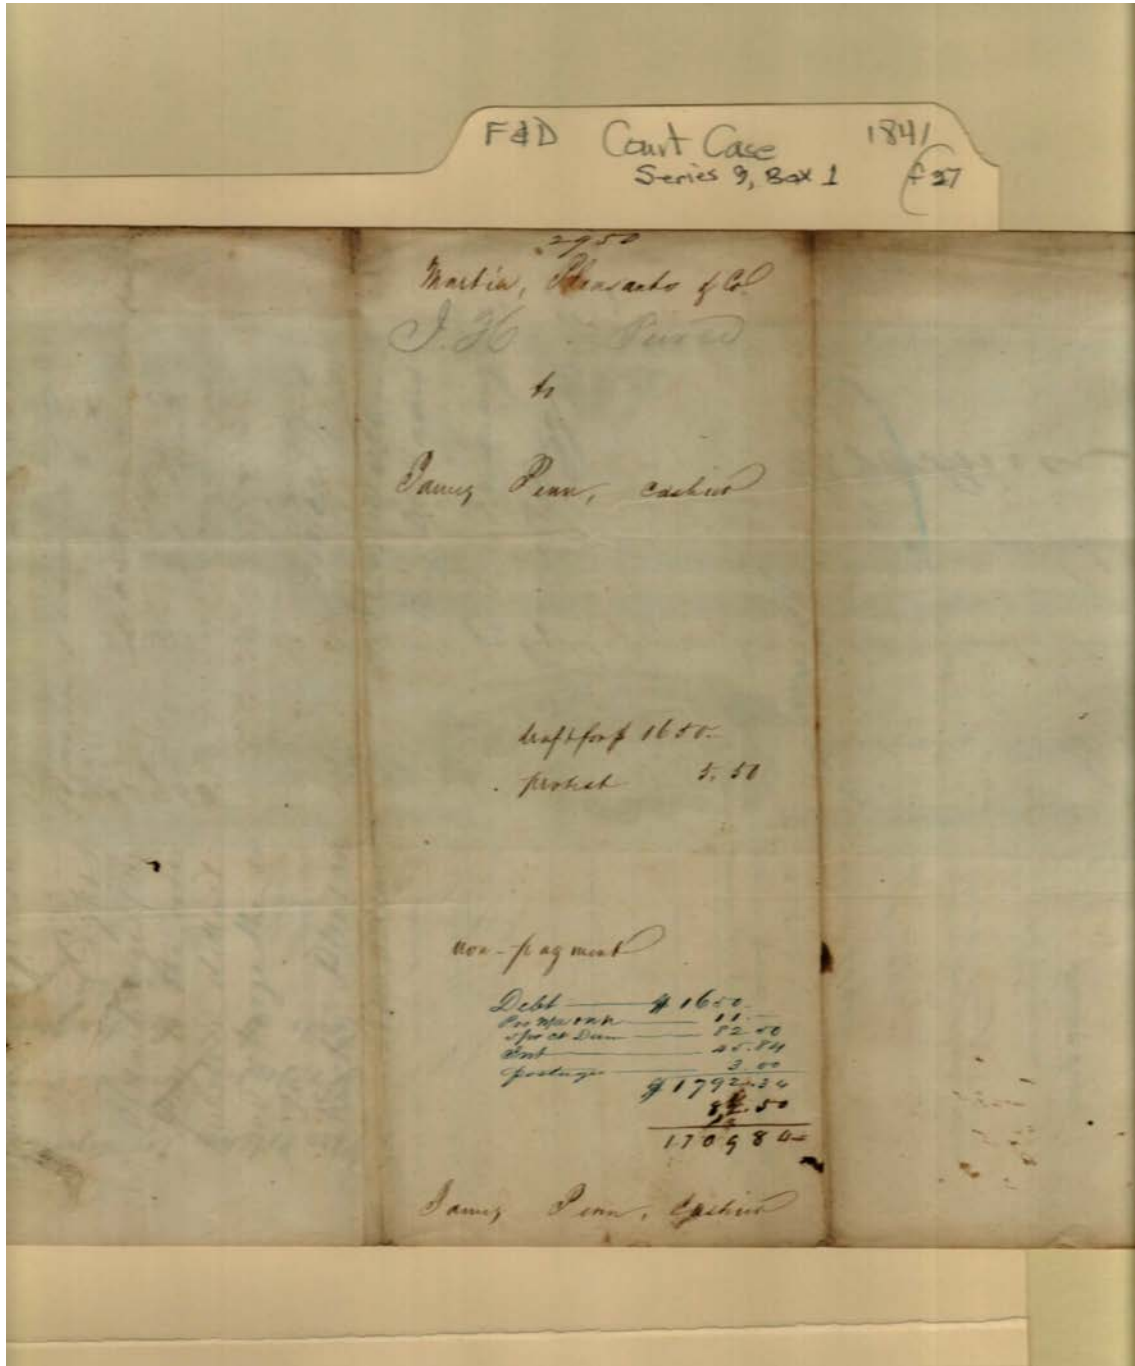 F&D Court Case 1841
Series 9, Box 1 f 37
2950
Martin, Pleasants & Co.
J. H
to
James Penn, Cashier
draft for $1650.
protest 5.50
non-payment
Debt $1650.
11.
5 per ct Dam 82.50
Int 45.84
postages 3.00
$1792.34
82.50
1709 84
James Penn, Cashier